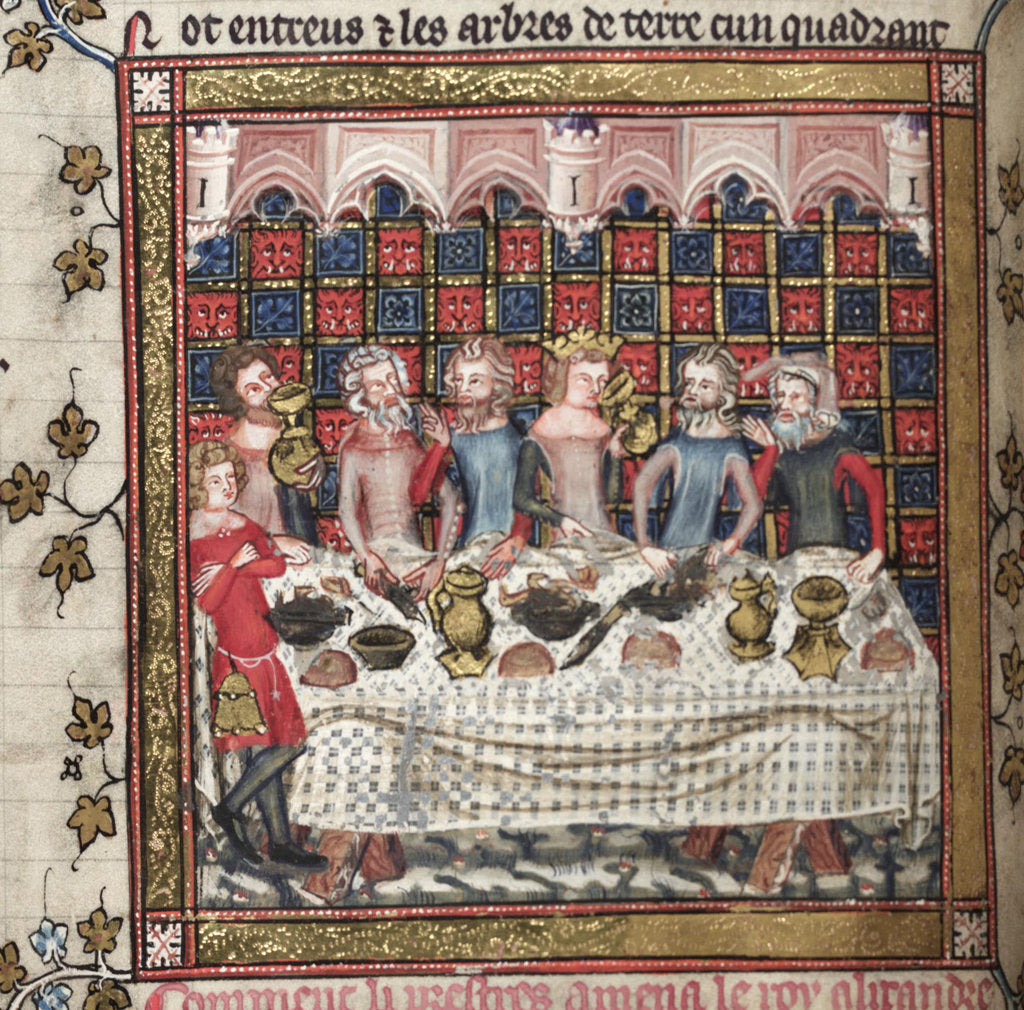 N ot entreus ⁊ les arbres de terre cun quadrant
Comment li prestres amena le roy alixandre